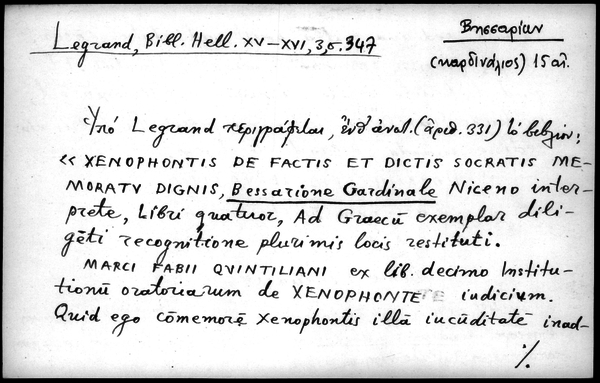 Legrand, Bibl. Hell. XV–XVI, 3, σ. 347
Βησσαρίων
(καρδινάλιος) 15 αἰ.
Ὑπό Legrand περιγράφεται, ἔνθ' ἀνωτ. (ἀριθ. 331) τό βιβλίον:
« XENOPHONTIS DE FACTIS ET DICTIS SOCRATIS ME-
MORATV DIGNIS, Bessarione Cardinale Niceno inter-
prete, Libri quatuor, Ad Graecū exemplar dili-
gēti recognitione plurimis locis restituti.
MARCI FABII QVINTILIANI ex lib. decimo Institu-
tionū oratoriarum de XENOPHONTE iudicium.
Quid ego cōmemorē Xenophontis illā iucūditatē inad-
./.